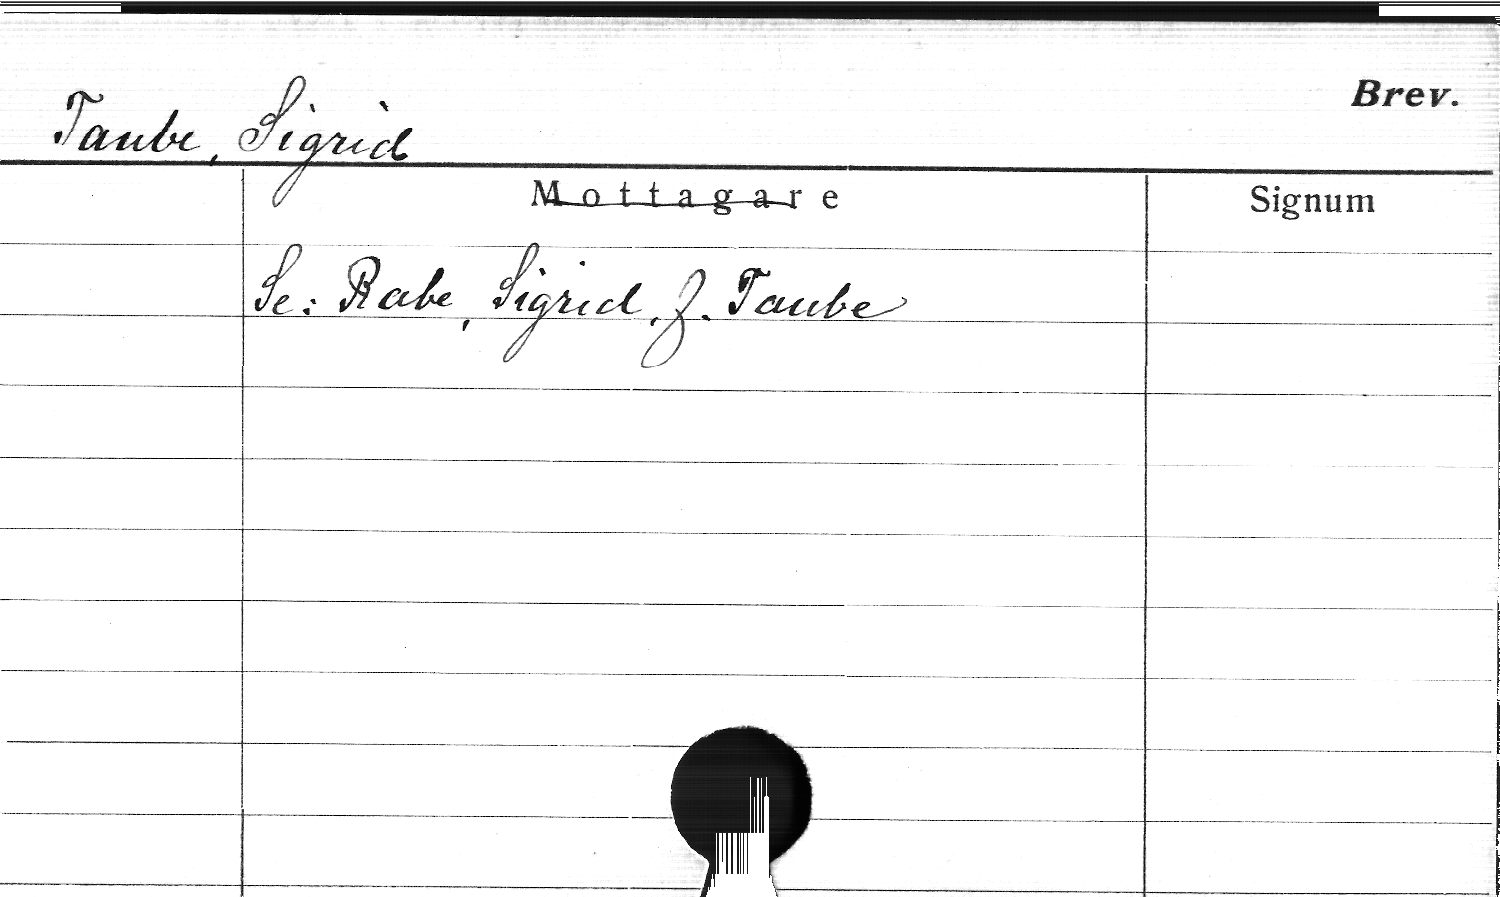 Brev.
Taube, Sigrid
Mottagare Signum
Se: Rabe, Sigrid, f. Taube